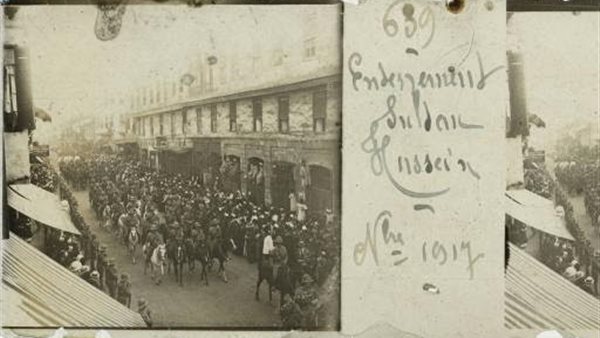 639
Enterrement
Sultan
Hussein
Nbre 1917